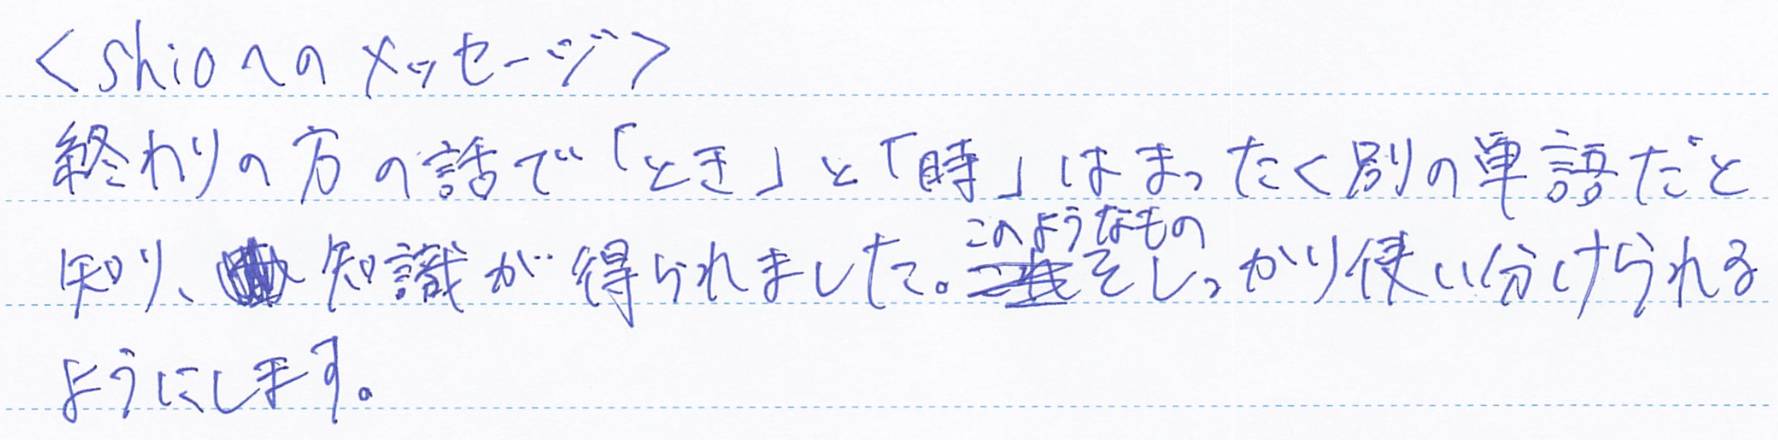 <shioへのメッセージ>
終わりの方の話で「とき」と「時」はまったく別の単語だと
知り、知識が得られました。このようなものをしっかり使い分けられる
ようにします。